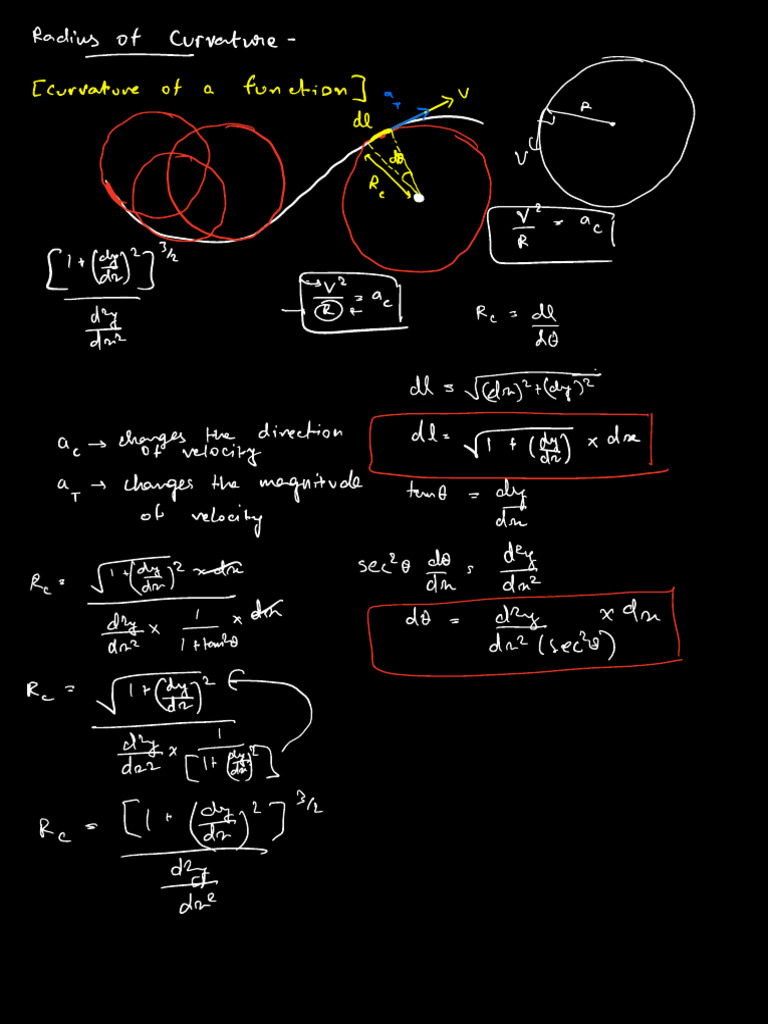 Radius of Curvature -
[curvature of a function]
a_T
V
dl
dθ
R_c
R
V
V²/R = a_c
[1+(dy/dx)²]^3/2 / d²y/dx²
V²/R = a_c
R_c = dl/dθ
dl = √(dx)²+(dy)²
dl = √1 + (dy/dx) × dx
a_c → changes the direction
of velocity
a_T → changes the magnitude
of velocity
tanθ = dy/dx
sec²θ dθ/dx = d²y/dx²
dθ = d²y/dx²(sec²θ) × dx
R_c = √1+(dy/dx)² × dx / d²y/dx² × 1/1+tan²θ × dx
R_c = √1+(dy/dx)² / d²y/dx² × 1/[1+(dy/dx)²]
R_c = [1 + (dy/dx)²]^3/2 / d²y/dx²